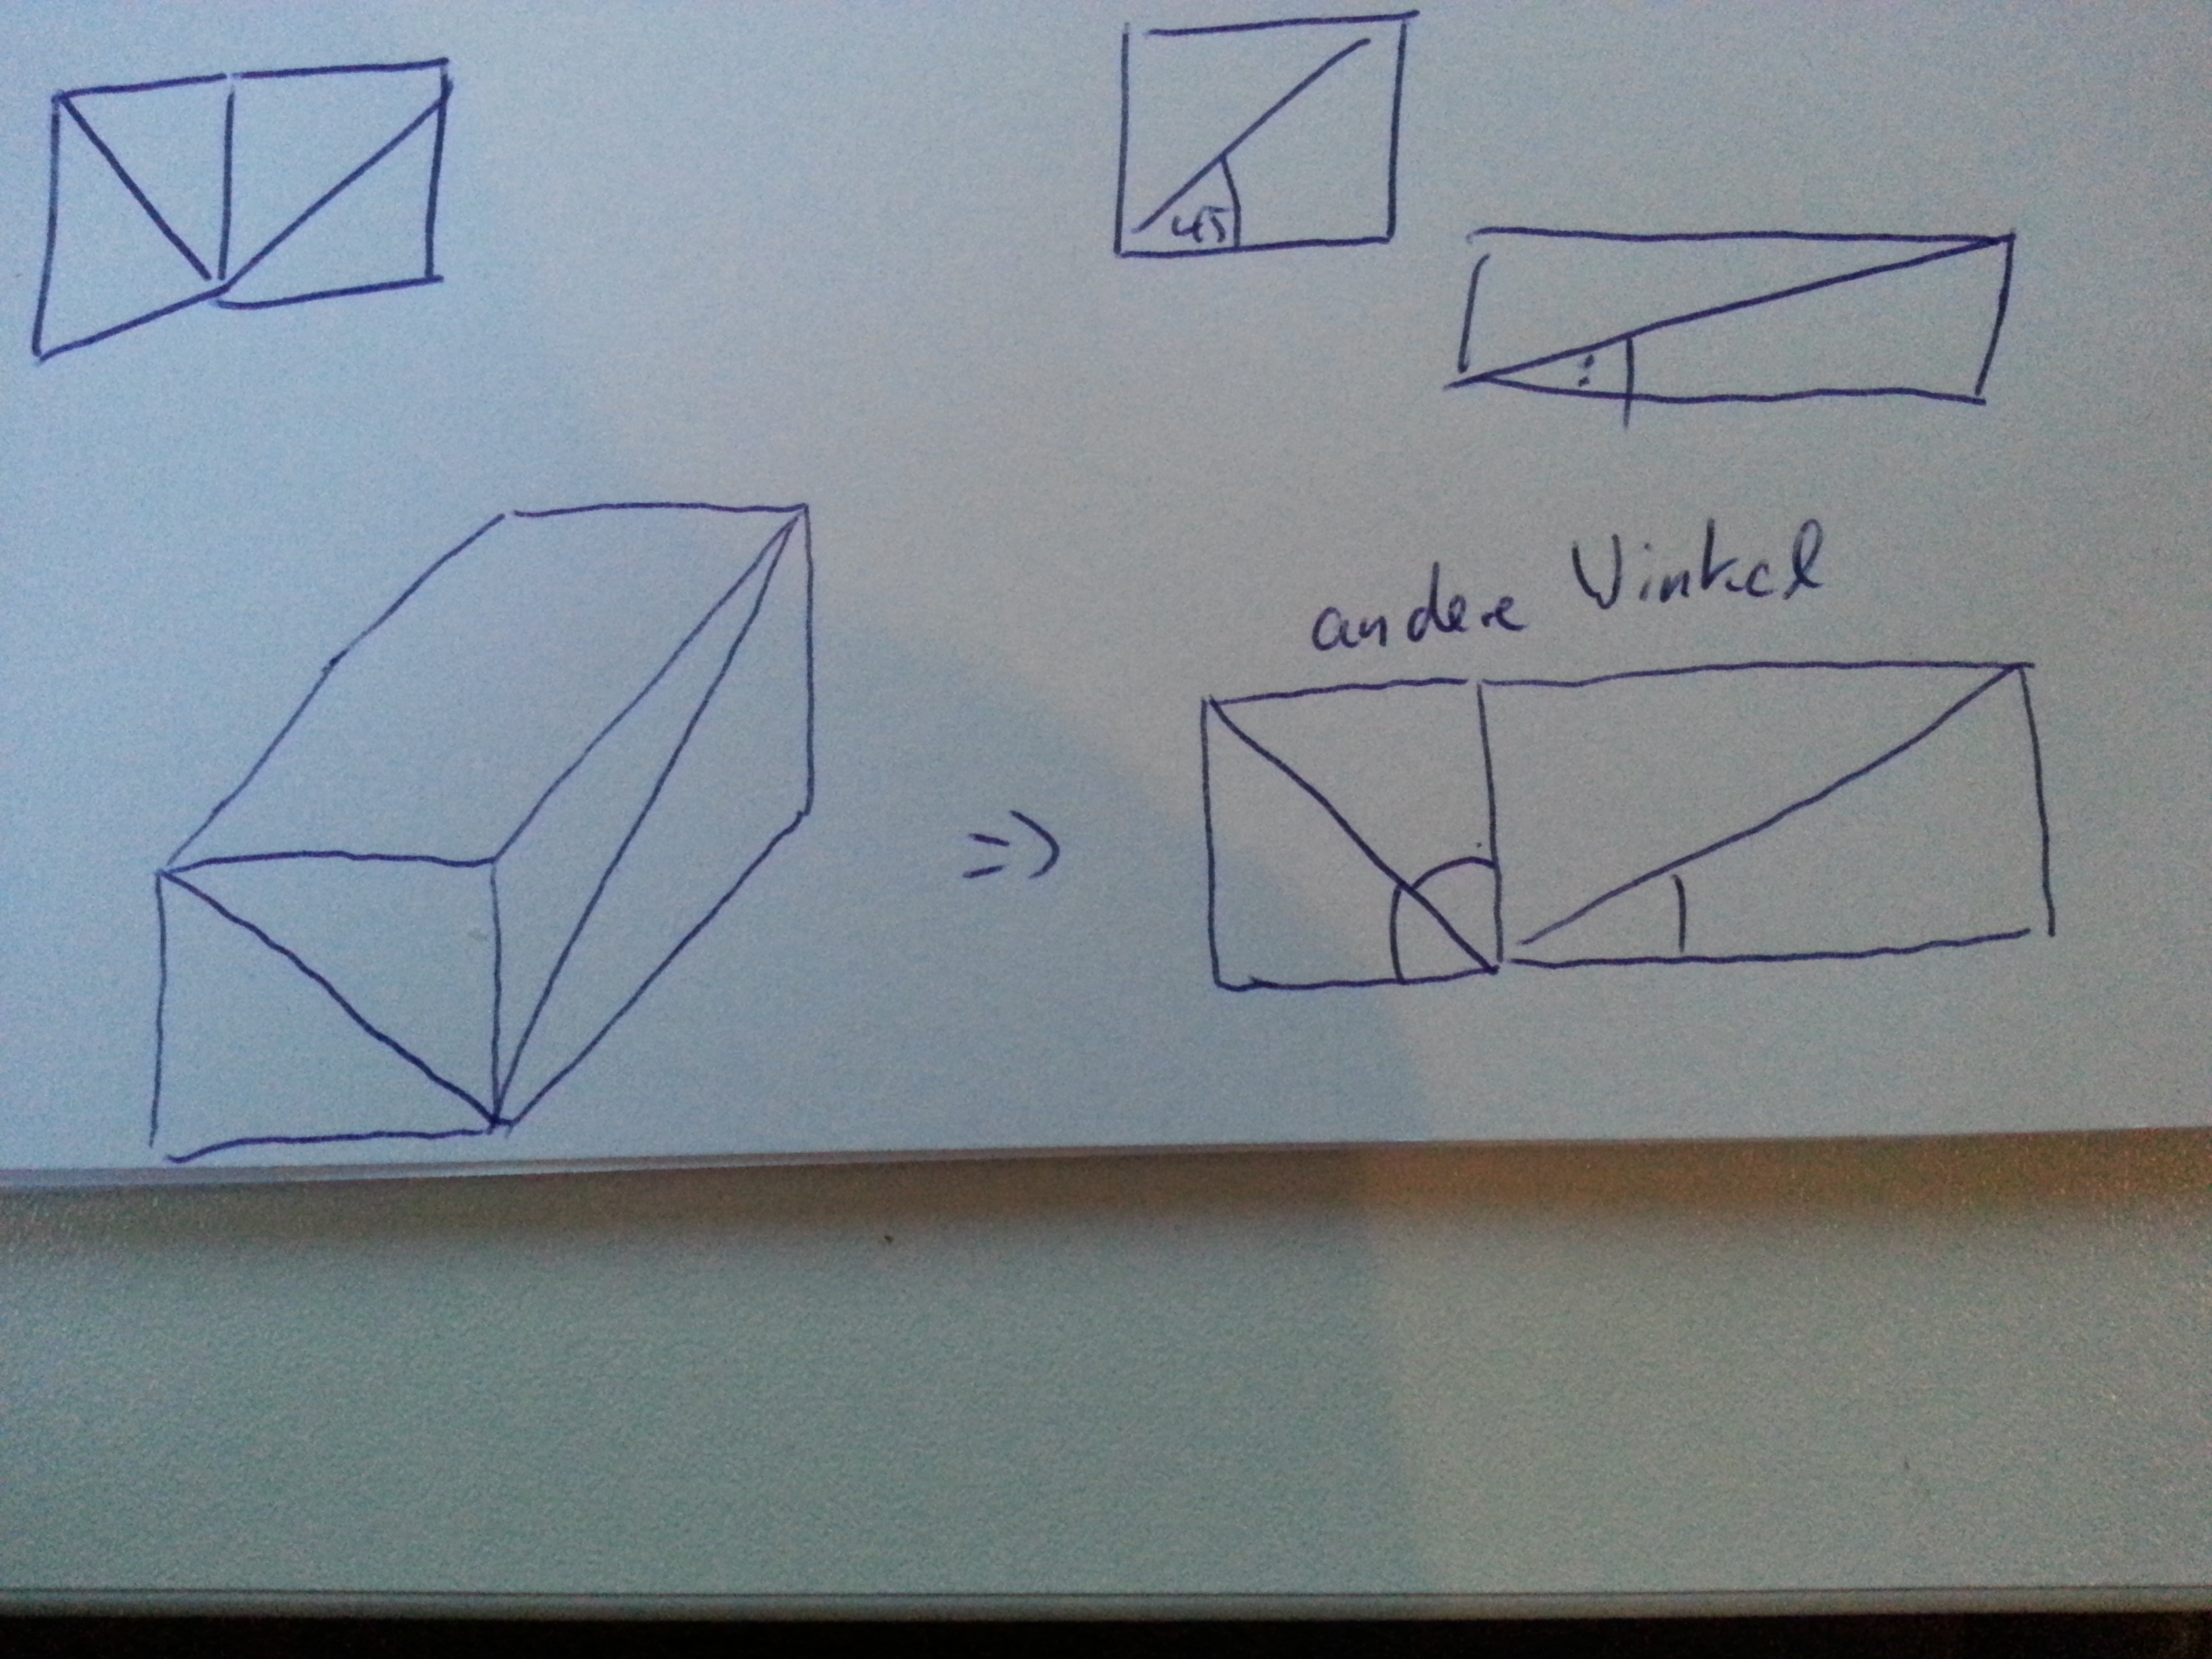 45
?
=>
andere Winkel